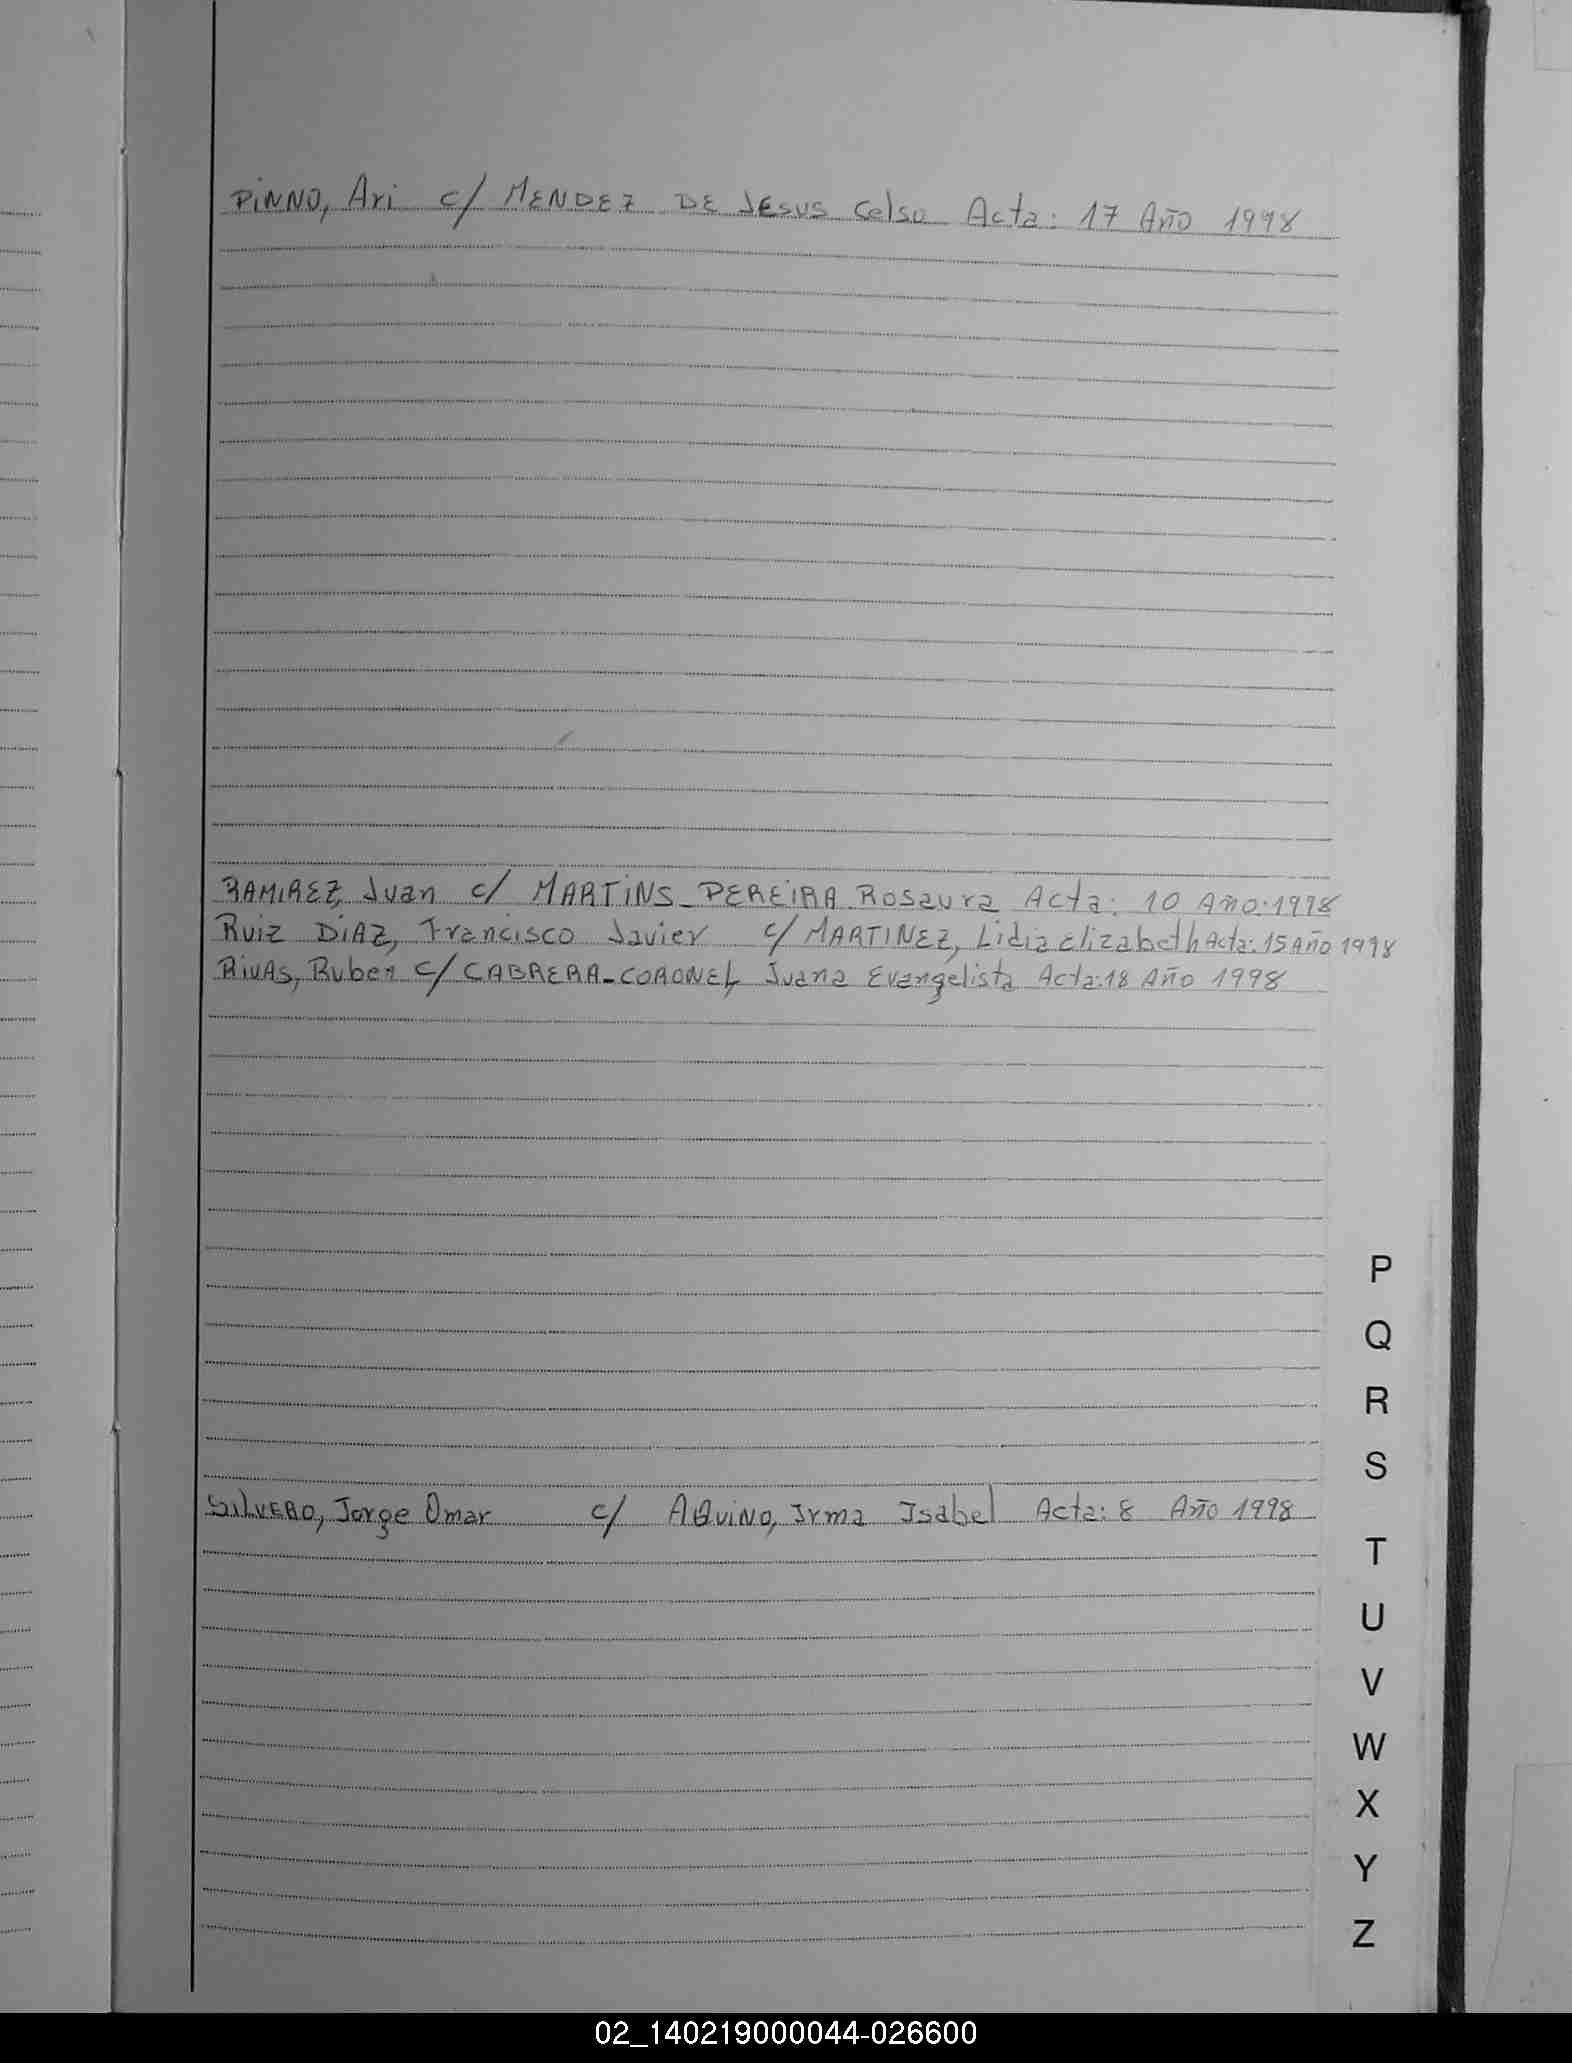 PINNO, Ari c/ MENDEZ DE JESUS Celso Acta: 17 Año 1998
RAMIREZ, Juan c/ MARTINS-PEREIRA Rosaura Acta: 10 Año: 1998
Ruiz DiAZ, Francisco Javier c/ MARTINEZ, Lidia Elizabeth Acta: 15 Año 1998
RiVAS, Ruben c/ CABRERA-CORONEL, Juana Evangelista Acta: 18 Año 1998
P
Q
R
S
SILVERO, Jorge Omar c/ AQuiNO, Irma Isabel Acta: 8 Año 1998
T
U
V
W
X
Y
Z
02_140219000044-026600